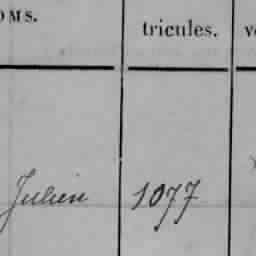 OMS. tricules. v
Julien 1077